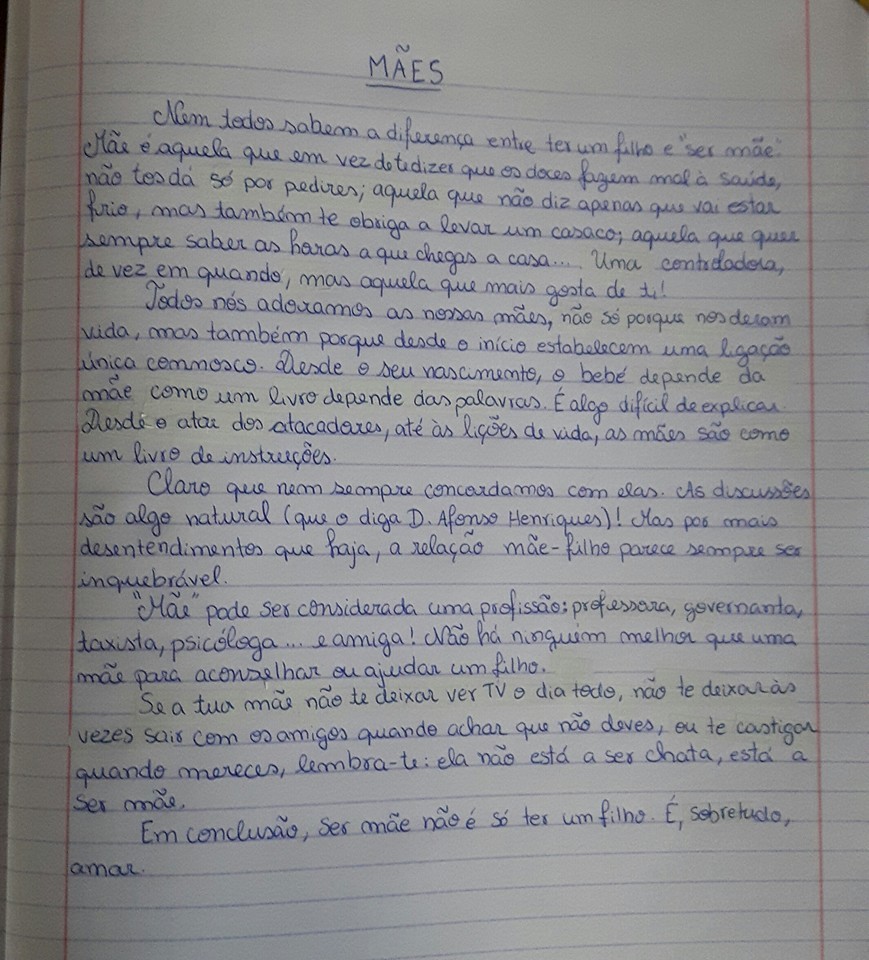 MÃES
Nem todos sabem a diferença entre ter um filho e "ser mãe".
Mãe é aquela que em vez de te dizer que os doces fazem mal à saúde,
não tos dá só por pedires; aquela que não diz apenas que vai estar
frio, mas também te obriga a levar um casaco; aquela que quer
sempre saber as horas a que chegas a casa... Uma controladora,
de vez em quando, mas aquela que mais gosta de ti!
Todos nós adoramos as nossas mães, não só porque nos deram
vida, mas também porque desde o início estabelecem uma ligação
única connosco. Desde o seu nascimento, o bebé depende da
mãe como um livro depende das palavras. É algo difícil de explicar.
Desde o atar dos atacadores, até às lições de vida, as mães são como
um livro de instruções.
Claro que nem sempre concordamos com elas. As discussões
são algo natural (que o diga D. Afonso Henriques)! Mas por mais
desentendimentos que haja, a relação mãe-filho parece sempre ser
inquebrável.
"Mãe" pode ser considerada uma profissão: professora, governanta,
taxista, psicóloga... e amiga! Não há ninguém melhor que uma
mãe para aconselhar ou ajudar um filho.
Se a tua mãe não te deixar ver TV o dia todo, não te deixar às
vezes sair com os amigos quando achar que não deves, ou te castigar
quando mereces, lembra-te: ela não está a ser chata, está a
ser mãe.
Em conclusão, ser mãe não é só ter um filho. É, sobretudo,
amar.